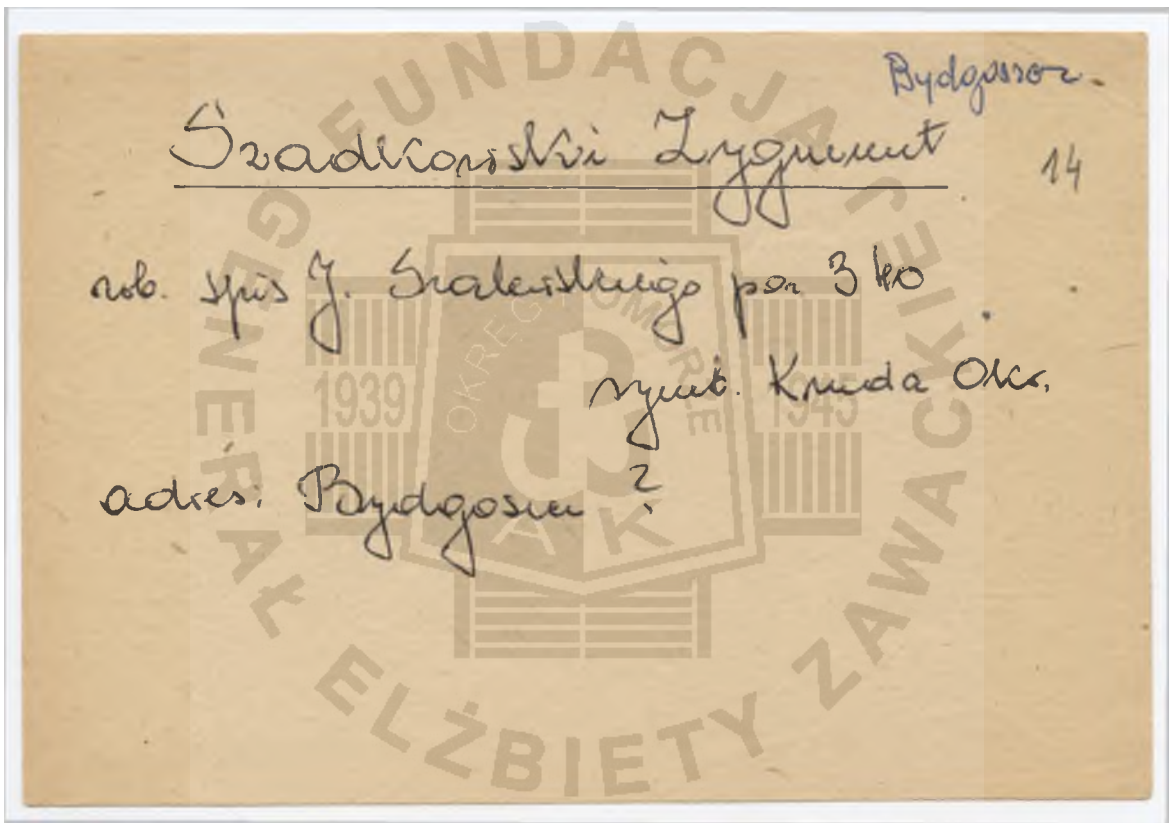 Bydgoszcz.
Szadkowski Zygmunt
14
rob. spis J. Szalewskiego por 3 ko
Kruda Okr.
adres: Bydgoszcz ?
FUNDACJA
GENERAŁ ELŻBIETY ZAWACKIEJ
OKRĘG POMORZE
1939
1945
AK